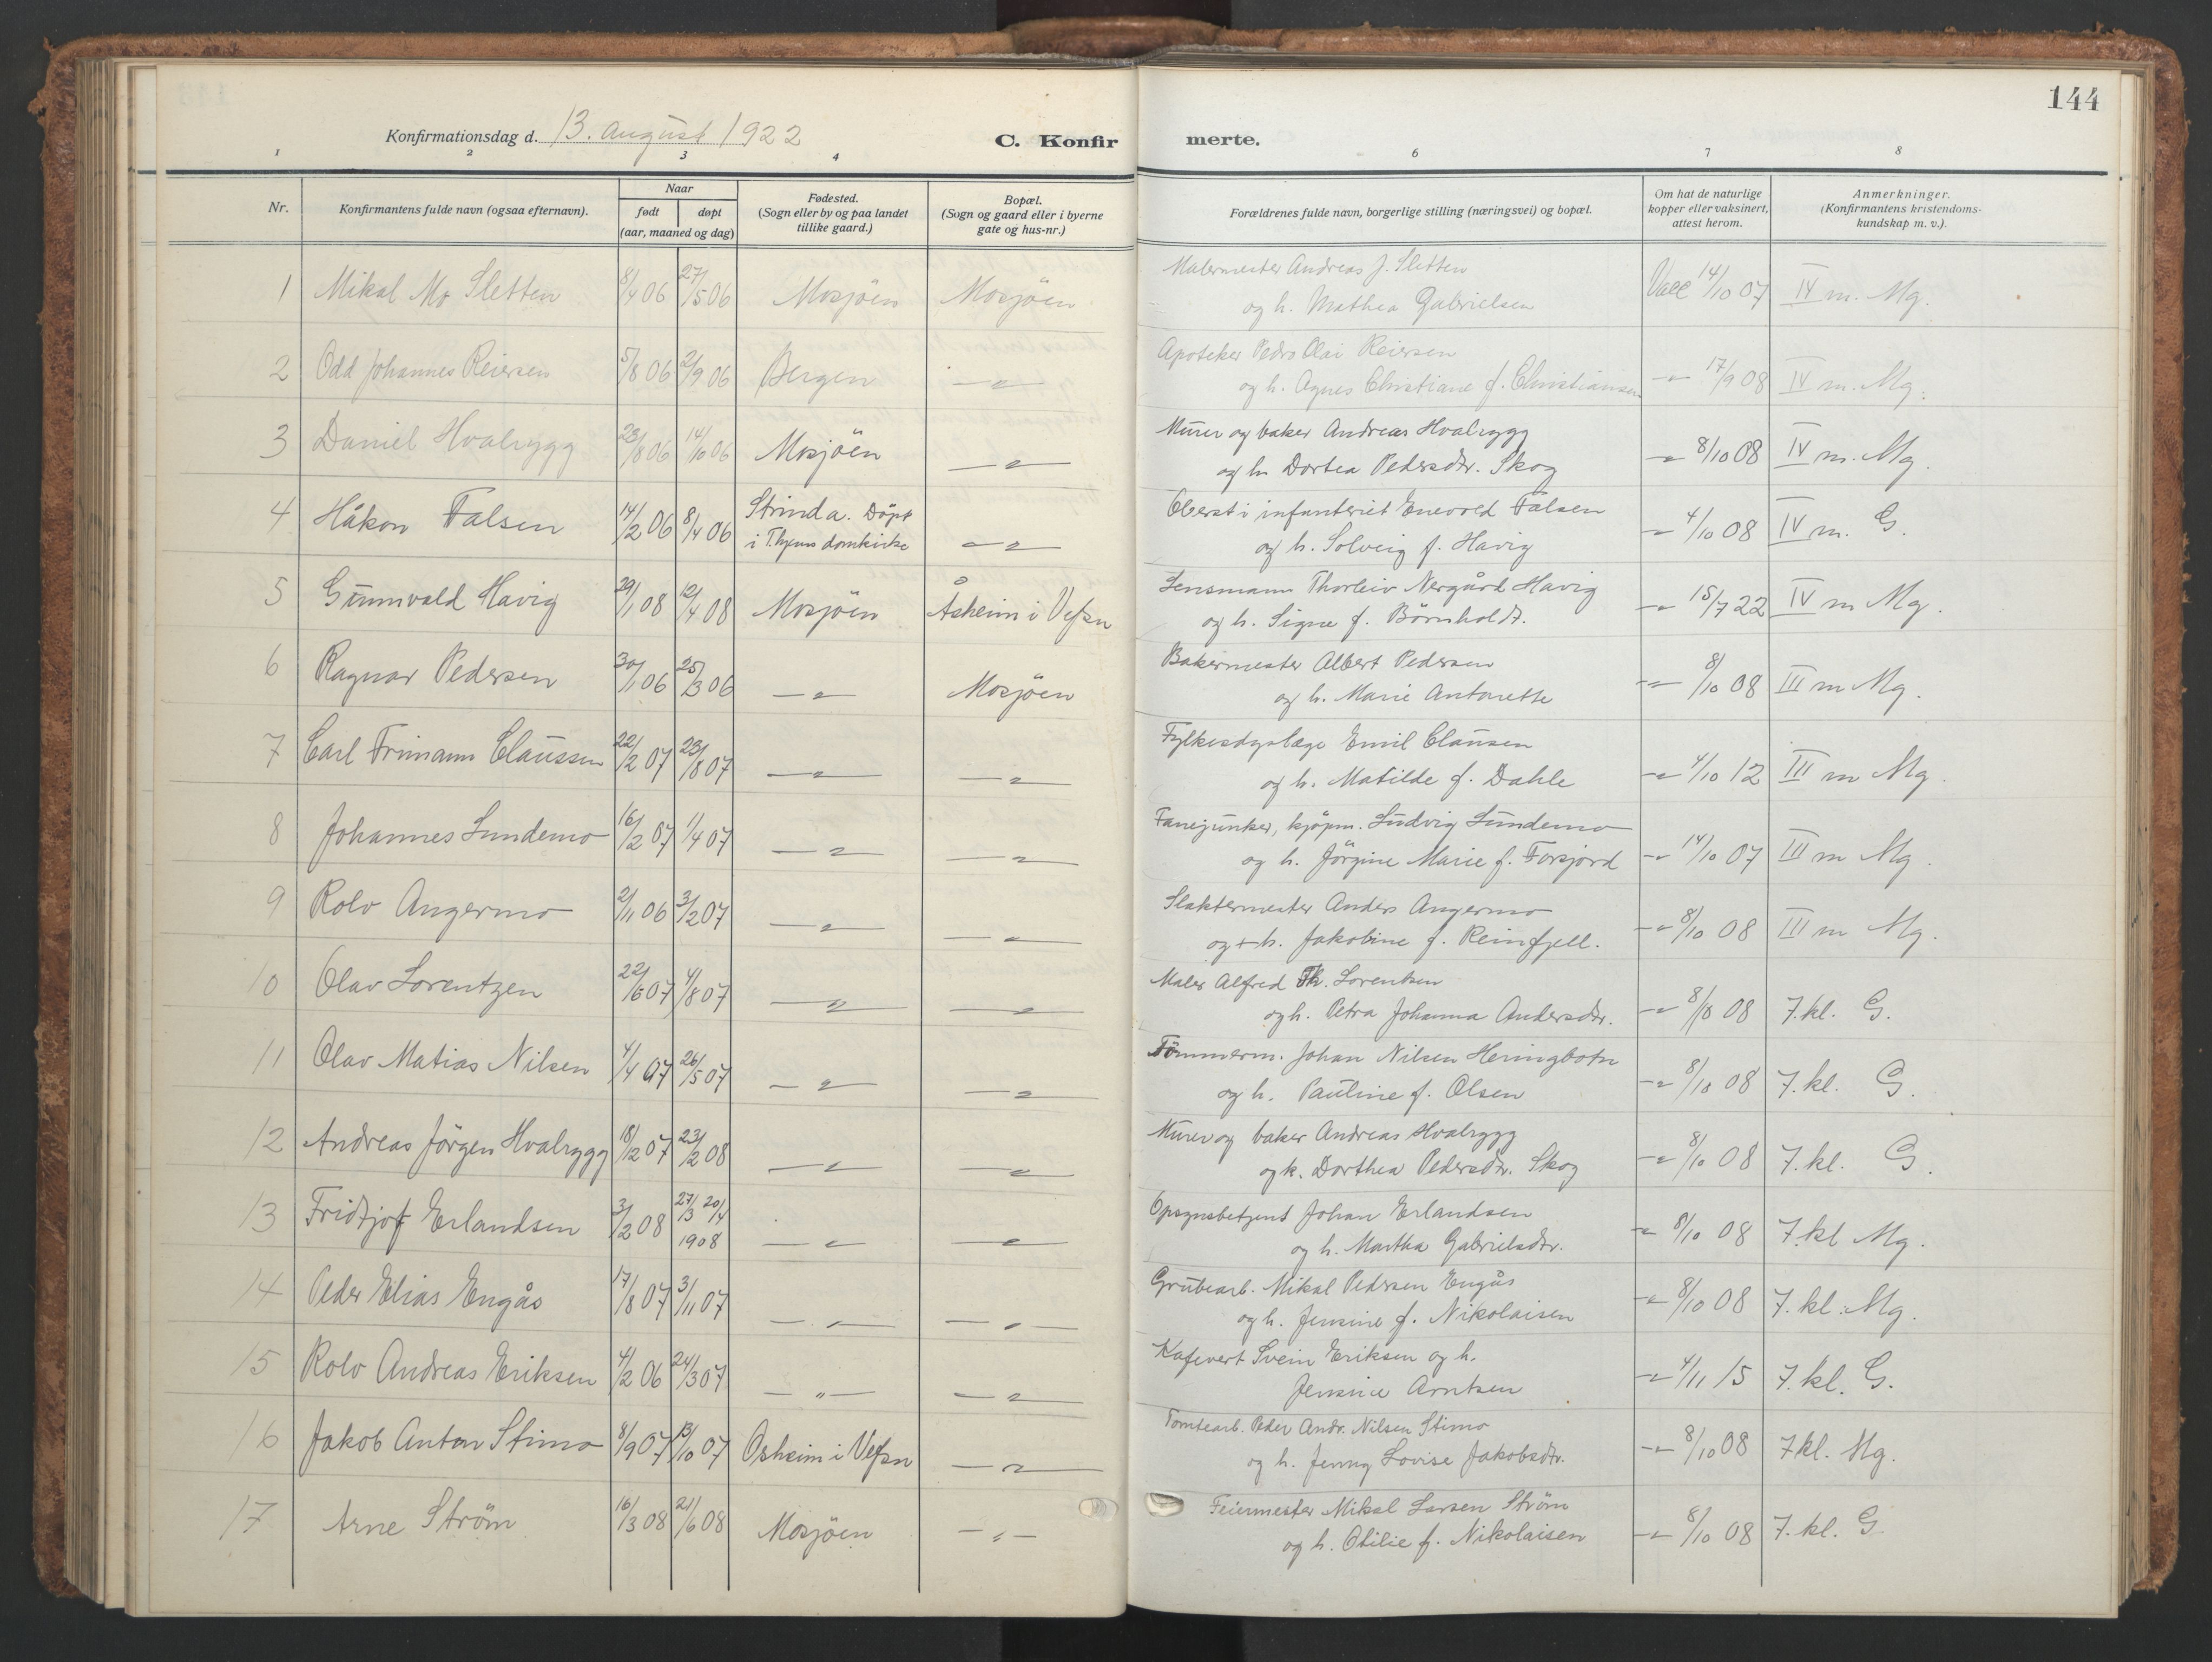 144
Konfirmationsdag d. 13. august 1922
C. Konfir merte.
1 2 3 4 6 7 8
Nr.
Konfirmantens fulde navn (ogsaa efternavn).
Naar
født døpt
(aar, maaned og dag)
Fødested.
(Sogn eller by og paa landet
tillike gaard.)
Bopæl.
(Sogn og gaard eller i byerne
gate og hus-nr.)
Forældrenes fulde navn, borgerlige stilling (næringsvei) og bopæl.
Om hat de naturlige
kopper eller vaksinert,
attest herom.
Anmerkninger.
(Konfirmantens kristendoms-
kundskap m. v.).
1 Mikal Mo Sletten 8/4 06 27/5 06 Mosjöen Mosjöen Malermester Andreas J. Sletten
og h. Mathea Gabrielsen Vacc 14/10 07 IV m. Mg.
2 Odd Johannes Reiersen 5/8 06 2/9 06 Bergen -"- Apoteker Pedro Olai Reiersen
og h. Agnes Christiane f. Christiansen -"- 17/9 08 IV m. Mg.
3 Daniel Hvalrygg 23/8 06 14/10 06 Mosjöen -"- Murer og baker Andreas Hvalrygg
og h. Dortea Pedersdtr. Skog -"- 8/10 08 IV m. Mg.
4 Håkon Falsen 14/2 06 8/4 06 Strinda. Döpt
i T.hjems domkirke -"- Oberst i infanteriet Enevold Falsen
og h. Solveig f. Havig -"- 4/10 08 IV m. G.
5 Gunnvald Havig 29/1 08 12/4 08 Mosjöen Åsheim i Vefsn Lensmann Thorleiv Nergård Havig
og h. Signe f. Börnholdt. -"- 15/7 22 IV m Mg.
6 Ragnar Pedersen 30/1 06 25/3 06 -"- Mosjöen Bakermester Albert Pedersen
og h. Marie Antonette -"- 8/10 08 III m Mg.
7 Carl Frimann Claussen 22/2 07 23/8 07 -"- -"- Fylkesdyrlæge Emil Clausen
og h. Matilde f. Dahle -"- 4/10 12 III m Mg.
8 Johannes Sundemo 16/2 07 1/4 07 -"- -"- Fanejunker, kjöpm. Ludvig Sundemo
og h. Jörgine Marie f. Forsjord -"- 14/10 07 III m Mg.
9 Rolv Angermo 2/11 06 3/2 07 -"- -"- Slaktermester Anders Angermo
og + h. Jakobine f. Reinfjell. -"- 8/10 08 III m Mg.
10 Olav Lorentzen 22/6 07 4/8 07 -"- -"- Maler Alfred Th. Lorentsen
og h. Petra Johanna Andersdtr. -"- 8/10 08 7. kl. G.
11 Olav Matias Nilsen 4/4 07 26/5 07 -"- -"- Tömmerm. Johan Nilsen Heringbotn
og h. Pauline f. Olsen -"- 8/10 08 7. kl. G.
12 Andreas Jörgen Hvalrygg 18/12 07 23/2 08 -"- -"- Murer og baker Andreas Hvalrygg
og h. Dorthea Pedersdtr. Skog -"- 8/10 08 7. kl. G.
13 Fridtjof Erlandsen 3/2 08 27/3 20/4
1908 -"- -"- Opsynsbetjent Johan Erlandsen
og h. Martha Gabrielsdtr. -"- 8/10 08 7. kl Mg.
14 Peder Elias Engås 17/8 07 3/11 07 -"- -"- Grubearb. Mikal Pedersen Engås
og h. Jensine f. Nikolaisen -"- 8/10 08 7. kl. Mg.
15 Rolv Andreas Eriksen 4/2 06 24/3 07 -"- -"- Kafevert Svein Eriksen og h.
Jensine Arntsen -"- 4/11 15 7. kl. G.
16 Jakob Anton Stimo 8/9 07 13/10 07 Osheim i Vefsn -"- Tomtearb. Peder Andr. Nilsen Stimo
og h. Jenny Lovise Jakobsdtr. -"- 8/10 08 7 kl. Mg.
17 Arne Ström 16/3 08 21/6 08 Mosjöen -"- Feiermester Mikal Larsen Ström
og h. Otilie f. Nikolaisen -"- 8/10 08 7. kl. G